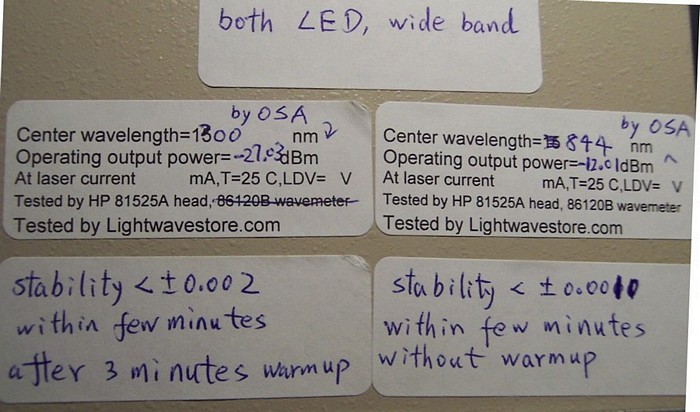 both LED, wide band
by OSA
Center wavelength=1300 nm
Operating output power=-27.03dBm
At laser current mA,T=25 C,LDV= V
Tested by HP 81525A head, 86120B wavemeter
Tested by Lightwavestore.com
stability < ±0.002
within few minutes
after 3 minutes warmup
by OSA
Center wavelength= 844 nm
Operating output power=-12.01dBm
At laser current mA,T=25 C,LDV= V
Tested by HP 81525A head, 86120B wavemeter
Tested by Lightwavestore.com
stability < ±0.0010
within few minutes
without warmup